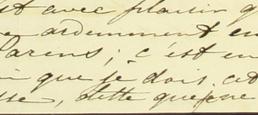 st avec plaisir q
ardemment en
Parens; c'est en
que je dois cet
sse, dette que je ne